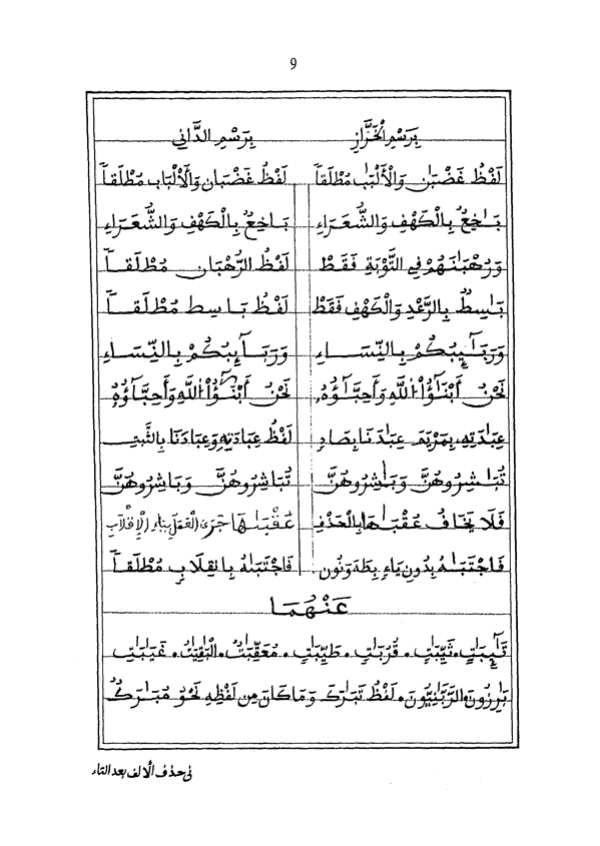 9
بِرَسْمِ الْخَرَّازِ بِرَسْمِ الدَّانِي
لَفْظُ غَضْبَٰنَ وَالْأَلْبَٰبِ مُطْلَقاً لَفْظُ غَضْبَانَ وَالْأَلْبَابِ مُطْلَقاً
بَٰخِعٌ بِالْكَهْفِ وَالشُّعَرَاءِ بَاخِعٌ بِالْكَهْفِ وَالشُّعَرَاءِ
وَرُهْبَٰنَهُمْ فِي التَّوْبَةِ فَقَطْ لَفْظُ الرُّهْبَانِ مُطْلَقاً
بَٰسِطُ بِالرَّعْدِ وَالْكَهْفِ فَقَطْ لَفْظُ بَاسِط مُطْلَقاً
وَرَبَٰٓئِبُكُمْ بِالنِّسَاءِ وَرَبَآئِبُكُمْ بِالنِّسَاءِ
نَحْنُ أَبْنَٰٓؤُاْ اللَّهِ وَأَحِبَّٰٓؤُهُۥ نَحْنُ أَبْنَٰٓؤُاْ اللَّهِ وَأَحِبَّآؤُهُ
عِبَٰدَتِهِۦ بِمَرْيَمَ عِبَٰدَنَا بِصَادِ لَفْظُ عِبَادَتِهِ وَعِبَادَنَا بِالثَّبْتِ
تُبَٰشِرُوهُنَّ وَبَٰشِرُوهُنَّ تُبَاشِرُوهُنَّ وَبَاشِرُوهُنَّ
فَلَا يَخَافُ عُقْبَٰهَا بِالْحَذْفِ عُقْبَٰهَا جَرَى الْعَمَلُ بِنَاءِ الْإِقْلَابِ
فَاجْتَبَٰهُ بِدُونِ يَاءٍ بِطَهَ وَنُون فَاجْتَبَٰهُ بِانْقِلَابٍ مُطْلَقاً
عَنْهُمَا
تَٰٓئِبَٰتٍ. ثَيِّبَٰتٍ. قُرُبَٰتٍ. طَيِّبَٰتٍ. مُعَقِّبَٰتٌ. الْبَٰقِيَٰتُ. غَيَٰبَٰتِ
بَٰرِزُونَ. الرَّبَّٰنِيُّونَ. لَفْظُ تَبَٰرَكَ وَمَا كَانَ مِن لَفْظِهِ نَحْوُ مُبَٰرَكٌ
في حذف الألف بعد التاء